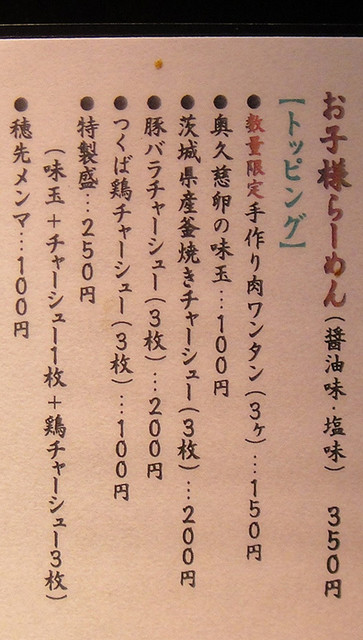 お子様らーめん(醤油味・塩味) 350円
【トッピング】
●数量限定手作り肉ワンタン(3ヶ)…150円
●奥久慈卵の味玉…100円
●茨城県産釜焼きチャーシュー(3枚)…200円
●豚バラチャーシュー(3枚)…200円
●つくば鶏チャーシュー(3枚)…100円
●特製盛…250円
(味玉+チャーシュー1枚+鶏チャーシュー3枚)
●穂先メンマ…100円